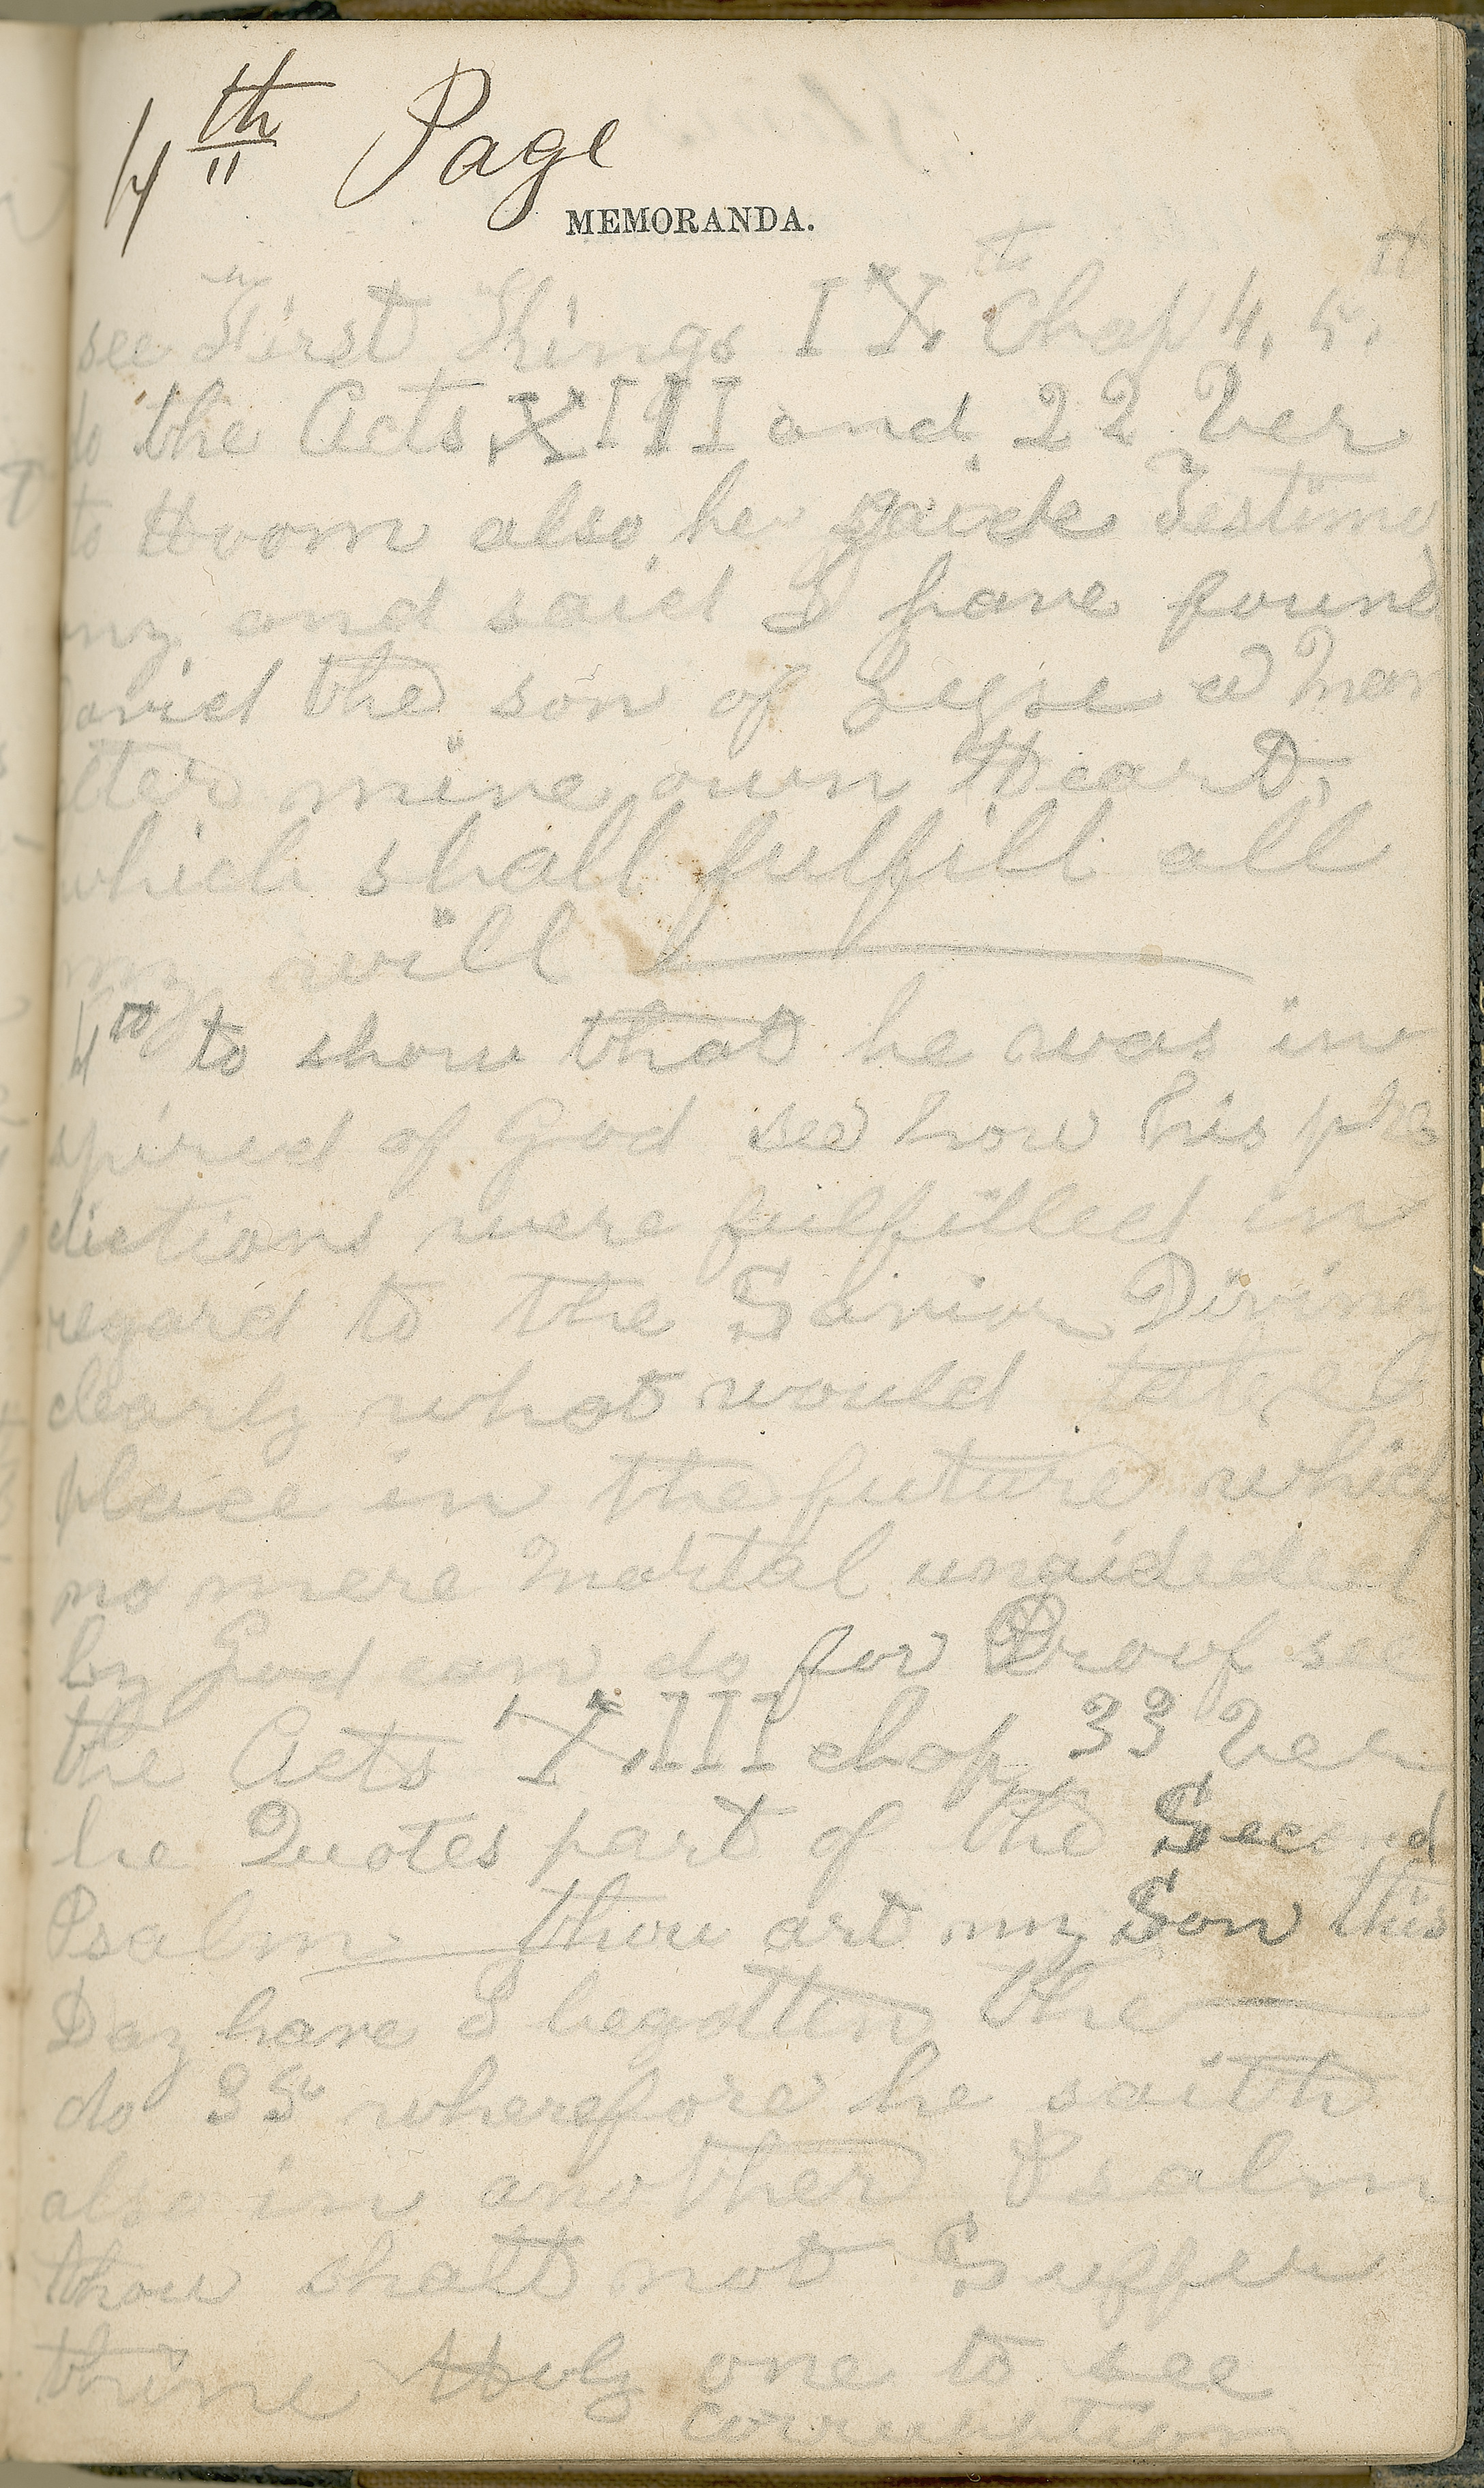 4th Page
MEMORANDA.
see First Kings IX th Chap 4, 5,
to the Acts XIII and 22 Ver
to Hoom also he gaide Testimo
ny and said I have found
David the son of Jesse a Man
after mine own Heart,
which shall fulfill all
my will
4th to show that he was in
spired of God see how his pre
dictions were fulfilled in
regard to the Savior Divine
clearly what would take
place in the future which
no mere Mortal unaideded
by God can do for Proof see
the Acts XIII chap 33 Ver
he Quotes part of the Second
Psalm thou art my Son this
Day have I begotten the
do 35 wherefore he saith
also in another Psalm
thou shalt not Suffer
thine Holy one to see
corruption